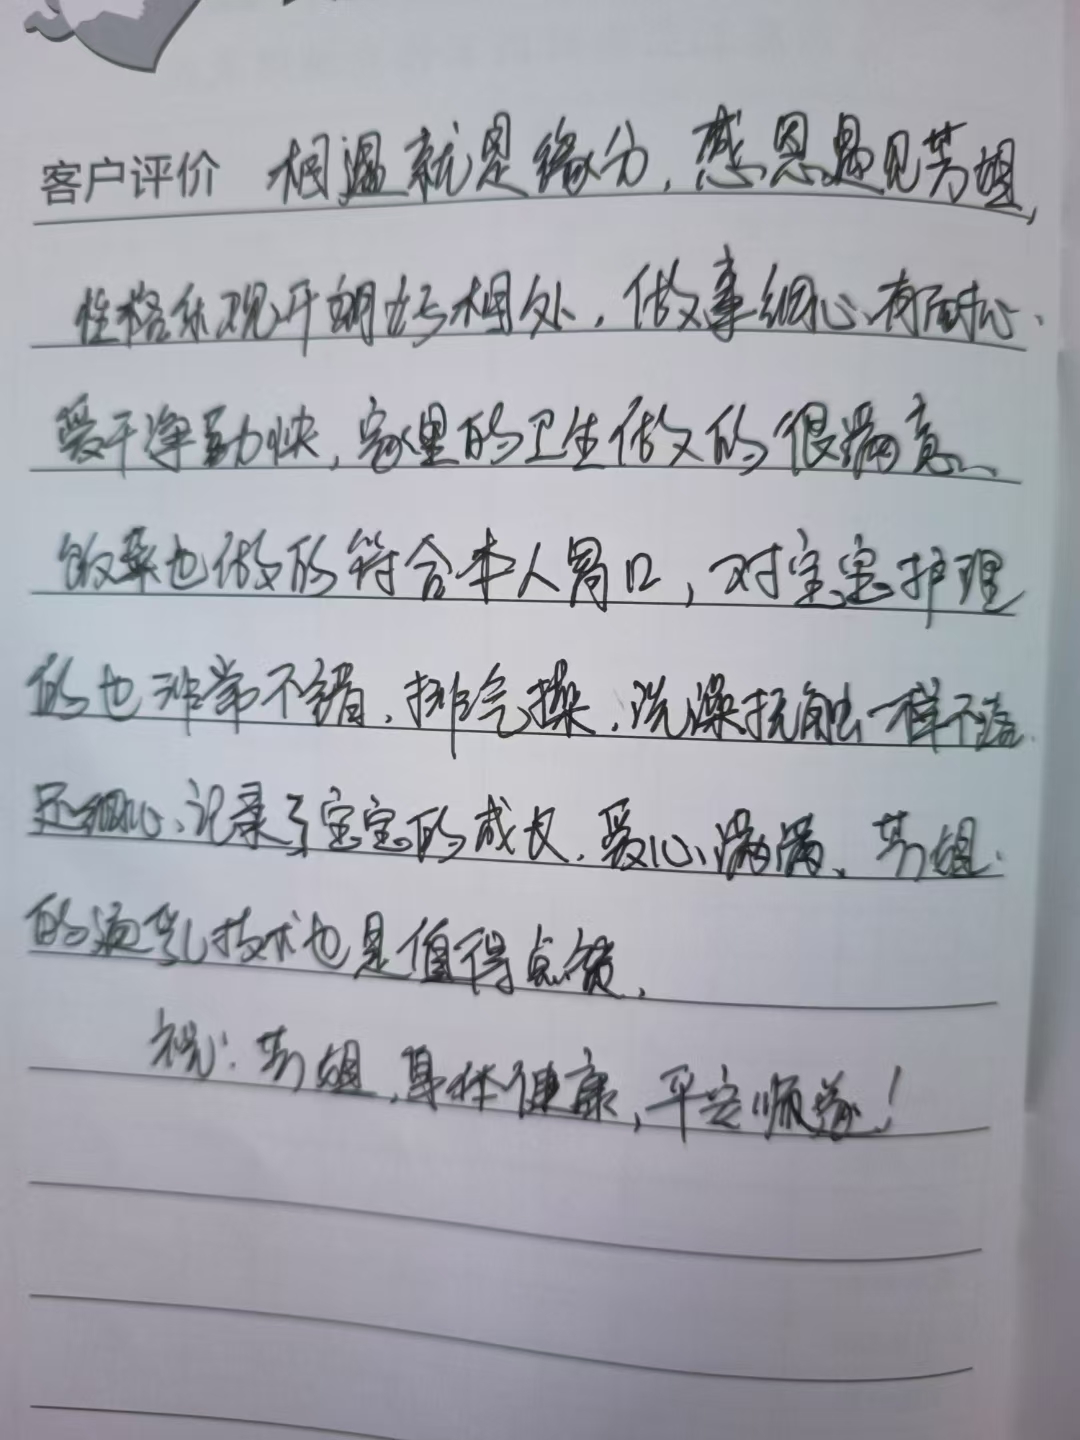 客户评价 相遇就是缘分,感恩遇见芳姐,
性格乐观开朗好相处,做事细心、有耐心、
爱干净勤快,家里的卫生做的很满意、
饭菜也做的符合本人胃口,对宝宝护理
的也非常不错、排气操、洗澡抚触一样不落、
还细心、记录了宝宝的成长、爱心满满、芳姐
的通乳技术也是值得点赞、
祝:芳姐,身体健康,平安顺遂!